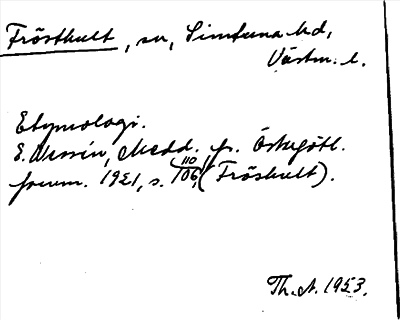 Frösthult, sn, Simtuna hd,
Västm. l.
Etymologi.
E. Wessén, Medd. fr. Östergötl.
fornm. 1921, s. 106, 110 (Fröshult).
Th. A. 1953.